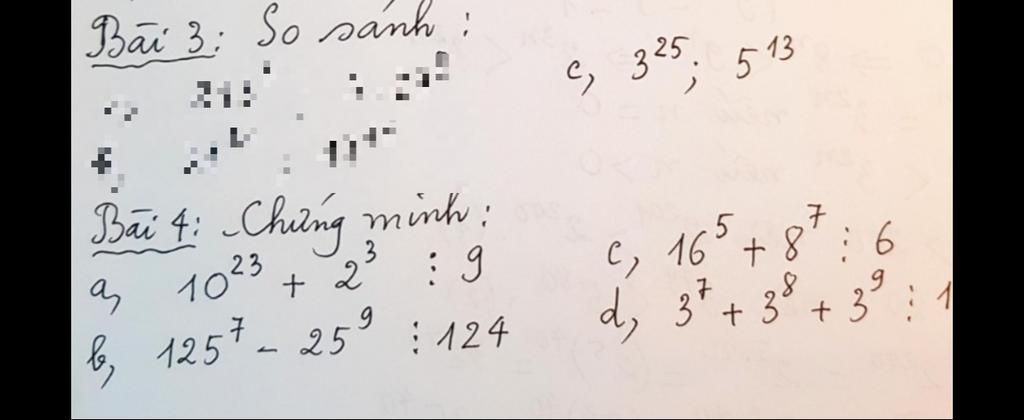 Bài 3: So sánh:
c, 3^25; 5^13
Bài 4: Chứng minh:
a, 10^23 + 2^3 ⋮ 9
b, 125^7 - 25^9 ⋮ 124
c, 16^5 + 8^7 ⋮ 6
d, 3^7 + 3^8 + 3^9 ⋮ 1